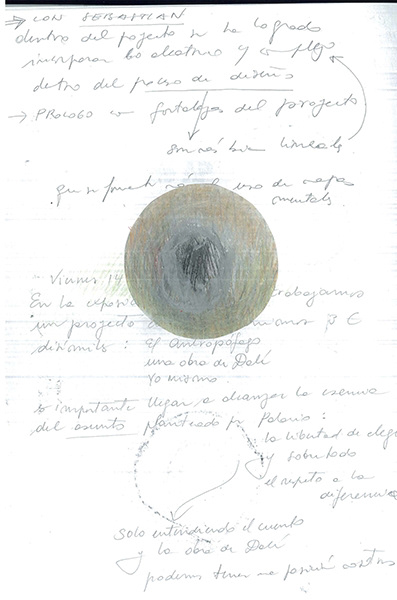 → CON SEBASTIAN
dentro del proyecto se ha logrado
incorporar lo aleatorio y complejo
detro del proceso de diseño
→ PROLOGO fortalezas del proyecto
son más bien lineales
que se fomente más el uso de mapas
mentales
Viernes 14
En la trabajamos
un proyecto
disímiles : El antropófago
una obra de Dalí
Yo mismo
Es importante llegar a alcanzar la esencia
del asunto planteado por Polanio :
la libertad de elegir
y sobretodo
el respeto a la
diferencia
solo entendiendo el cuento
y la obra de Dalí
podemos tener una posición